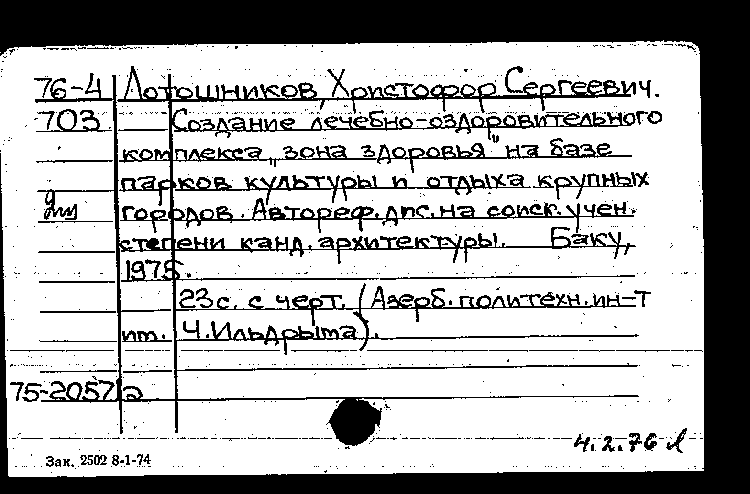 76-4 Лотошников, Христофор Сергеевич.
703 Создание лечебно-оздоровительного
комплекса „зона здоровья" на базе
парков культуры и отдыха крупных
городов. Автореф. дис. на соиск. учен.
степени канд. архитектуры. Баку,
1975.
23 с. с черт. (Азерб. политехн. ин-т
им. Ч. Ильдрыма).
75-20571а
4.2.76
Зак. 2502 8-1-74